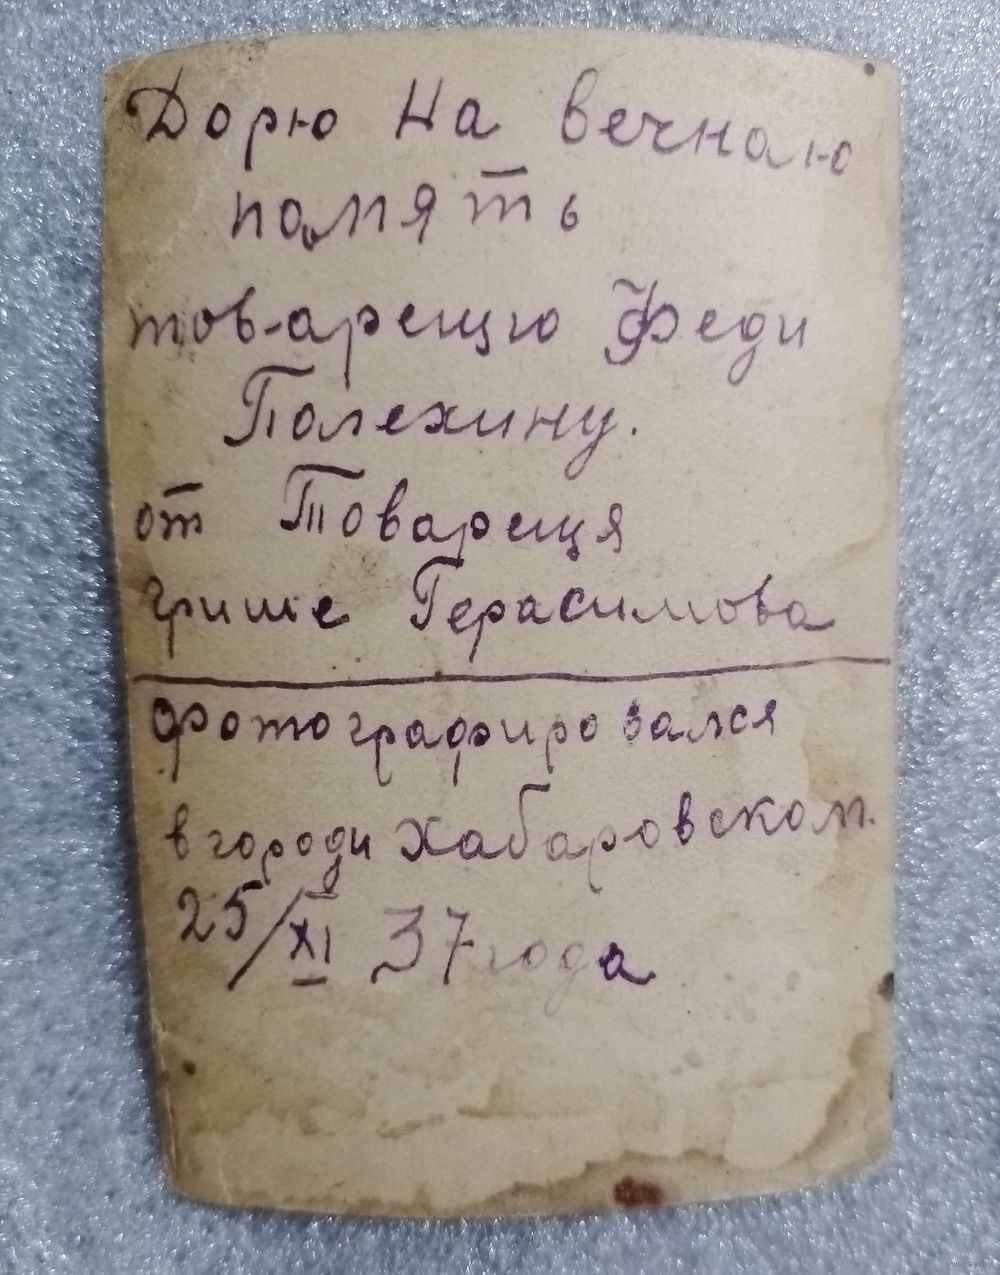 Дорю на вечнаю
помять
товарещю Феди
Полехину.
от Товареща
грише Герасимова
фотографировался
в городи Хабаровском.
25/XI 37 года
www.ay.by